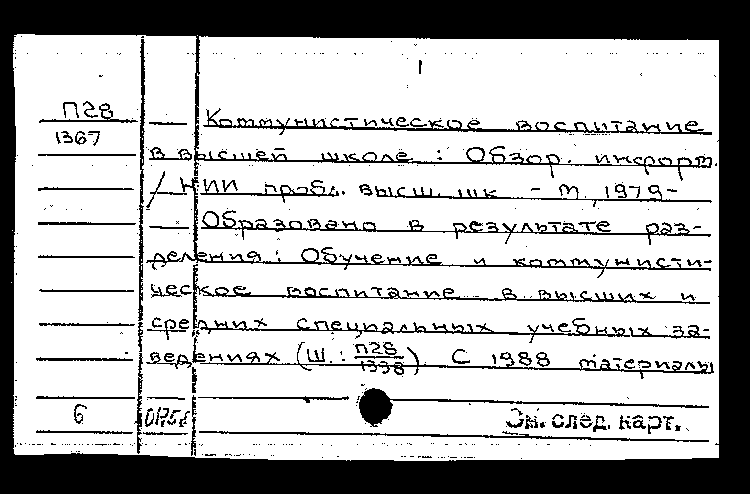 1
П28
1367
— Коммунистическое воспитание
в высшей школе : Обзор. информ.
/ НИИ пробл. высш. шк - М, 1979-
— Образовано в результате раз-
деления: Обучение и коммунисти-
ческое воспитание в высших и
средних специальных учебных за-
ведениях (Ш.: П28/1398). С 1988 материалы
6
См. след. карт.